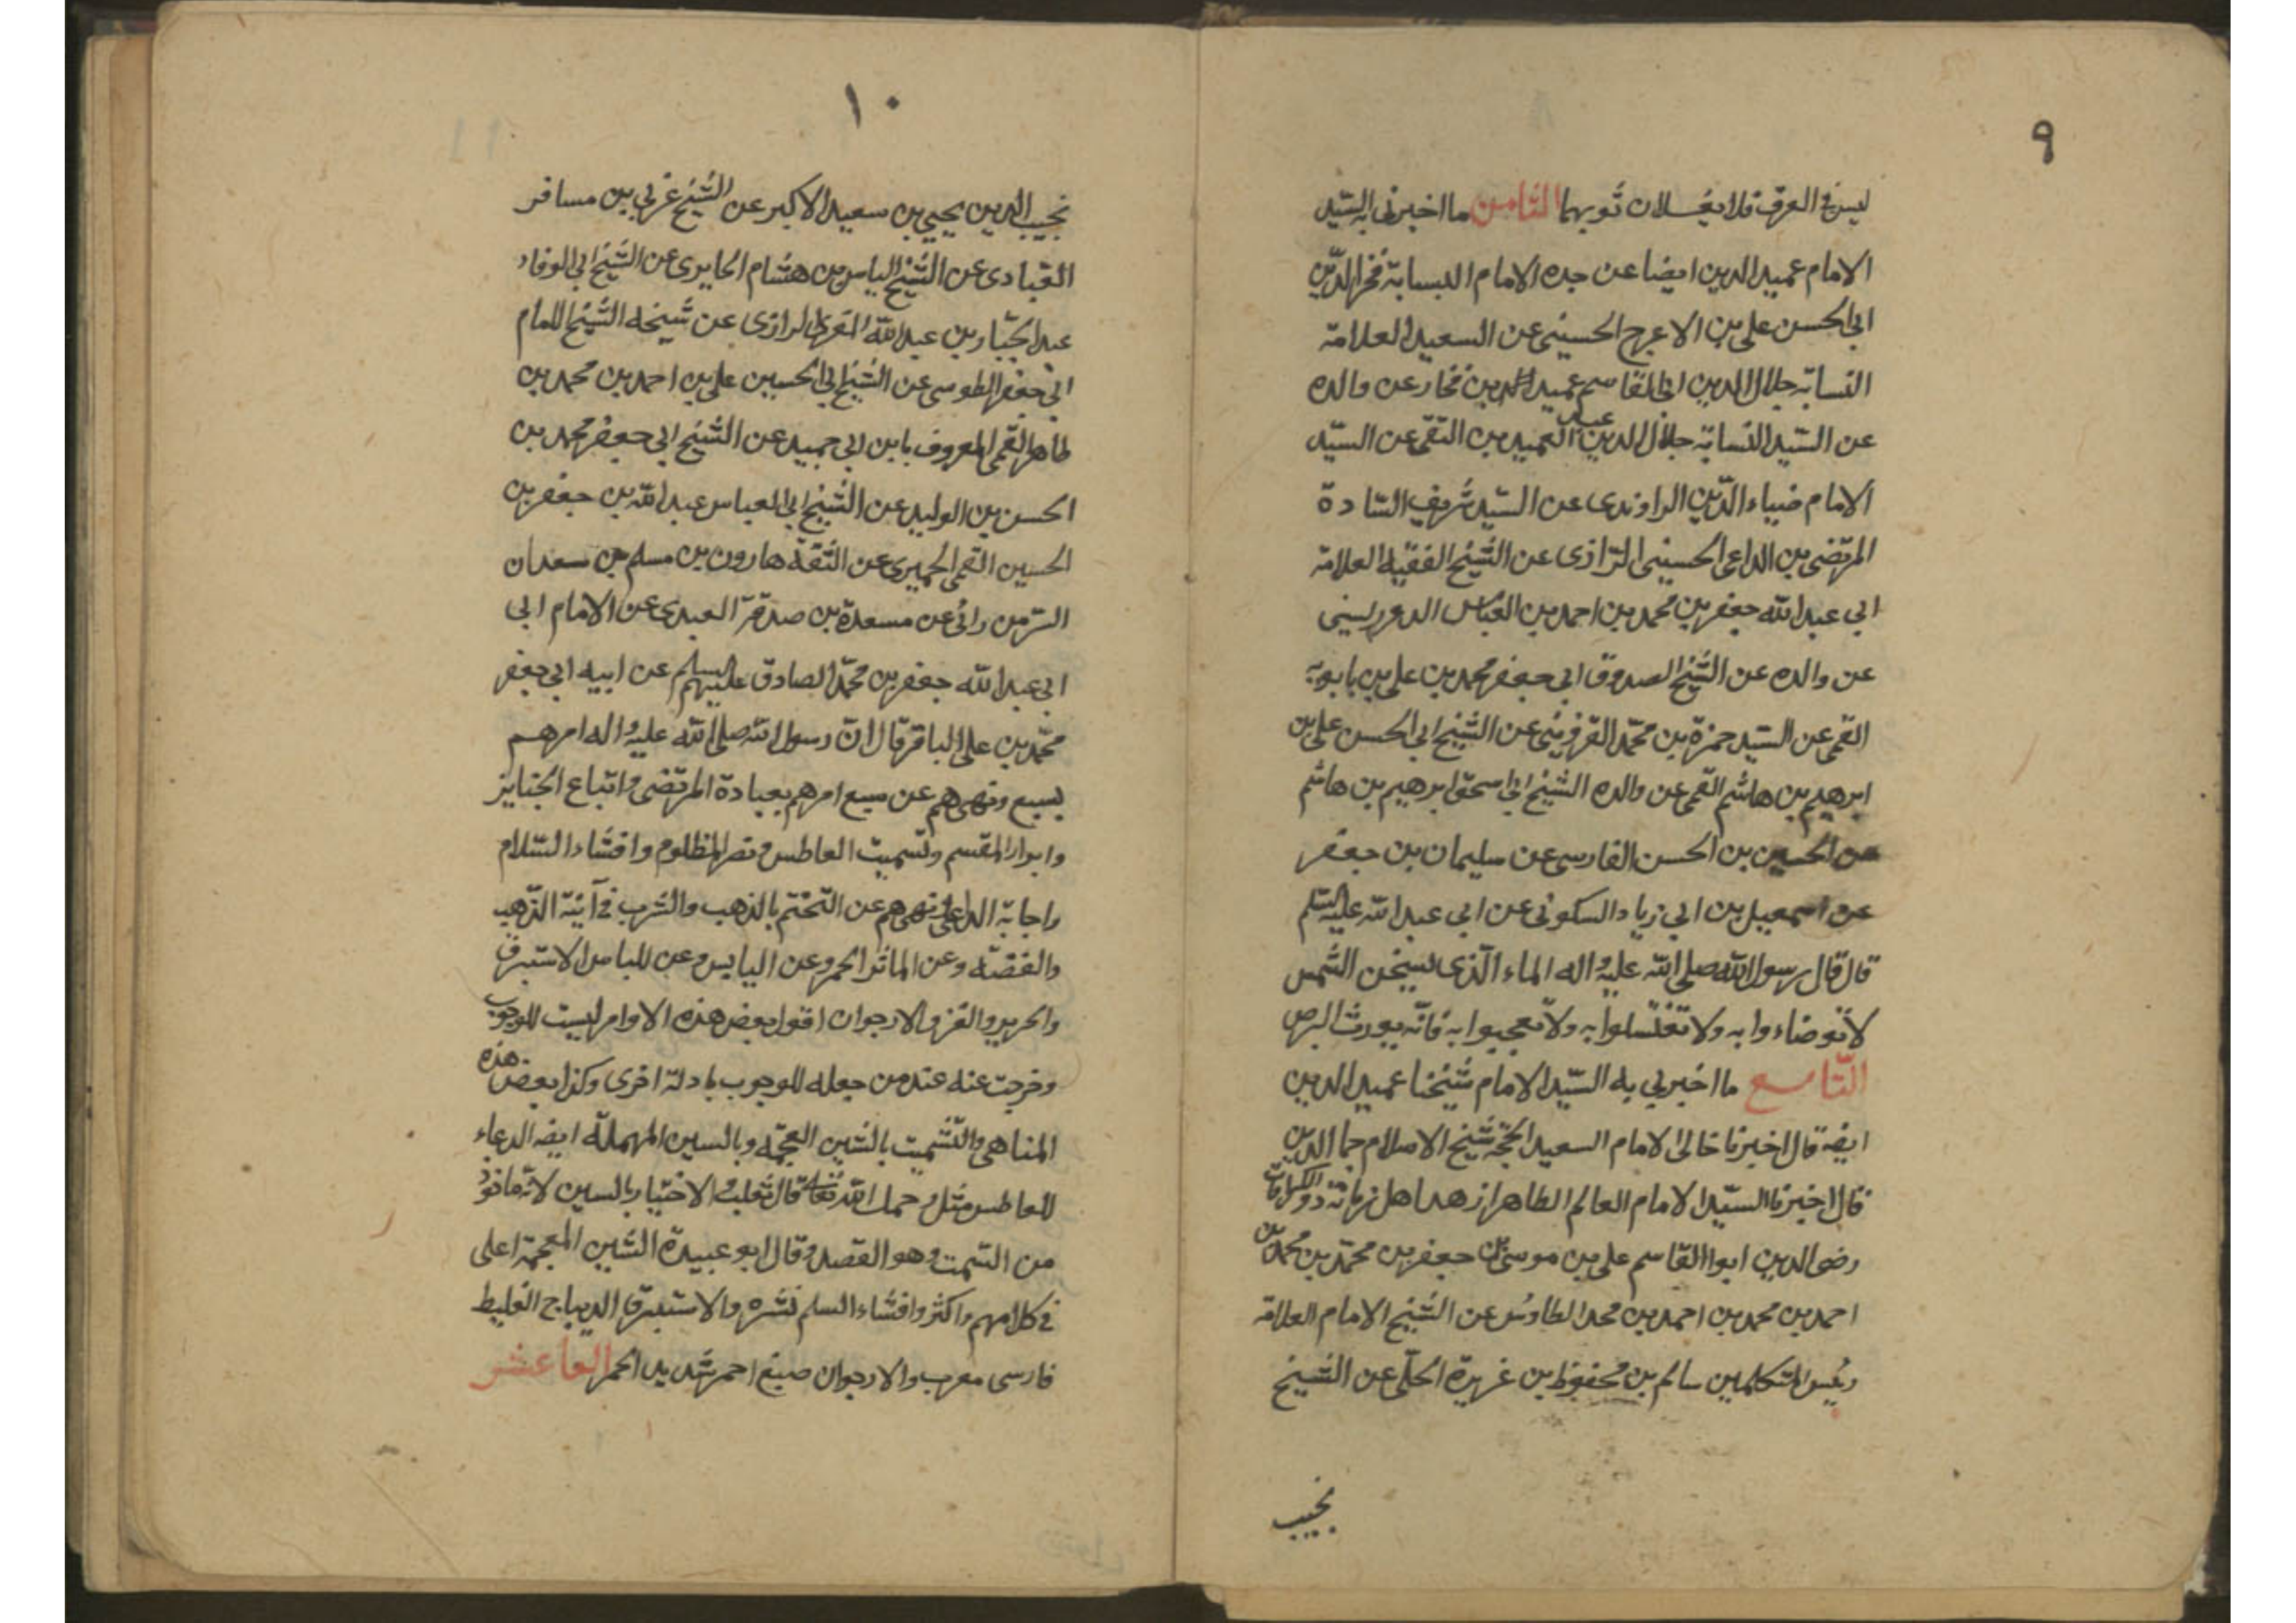 ٩
ليس في العرق فلا يغسلان ثوبهما الثامن ما اخبرنى به السّيد
الامام عميد الدين ايضا عن جده الامام النسابة فخر الدّين
ابى الحسن على بن الاعرج الحسينى عن السعيد العلامة
النسابة جلال الدين ابى القاسم عميد الدين فخار عن والده
عن السّيد النسابة جلال الدين عبد الحميد بن التقى عن السيّد
الامام ضياء الدّين الراوندى عن السّيد شريف السّادة
المرتضى بن الداعى الحسينى الرّازى عن الشّيخ الفقيه العلامة
ابى عبد الله جعفر بن محمد بن احمد بن العباس الدوريستى
عن والده عن الشّيخ الصدوق ابى جعفر محمد بن على بن بابويه
القمى عن السّيد حمزة بن محمّد القزوينى عن الشّيخ ابى الحسن على بن
ابرهيم بن هاشم القمى عن والده الشّيخ ابى اسحق ابرهيم بن هاشم
عن الحسين بن الحسن الفارسى عن سليمان بن جعفر
عن اسمعيل بن ابى زياد السكونى عن ابى عبد الله عليه السّلم
قال قال رسول الله صلى الله عليه واله الماء الّذى يسخن الشّمس
لا توضاءوا به ولا تغتسلوا به ولا تعجبوا به فانّه يورث البرص
التّاسع ما اخبرنى به السّيد الامام شيخنا عميد الدين
ايضه قال اخبرنا خالى الامام السعيد الحجّة شيخ الاسلام جمال الدين
قال اخبرنا السيّد الامام العالم الطاهر ازهد اهل زمانه ذو الكرامات
رضى الدين ابوا القاسم على بن موسى بن جعفر بن محمّد بن محمّد بن
احمد بن محمد بن احمد بن محمد الطاوس عن الشّيخ الامام العلامة
رئيس المتكلمين سالم بن محفوظ بن غريرة الحلّى عن الشّيخ
نجيب
١٠
نجيب الدين يحيى بن سعيد الاكبر عن الشّيخ غربى بن مسافر
القبادى عن الشّيخ الياس بن هشام الحايرى عن الشّيخ ابى الوفاء
عبد الجبّار بن عبد الله المقرى الرازى عن شيخه الشّيخ الامام
ابى جعفر الطوسى عن الشّيخ ابى الحسين على بن احمد بن محمد بن
طاهر القمى المعروف بابن ابى جميد عن الشّيخ ابى جعفر محمد بن
الحسن بن الوليد عن الشّيخ ابى العباس عبد الله بن جعفر بن
الحسين القمى الحميرى عن الثقة هارون بن مسلم بن سعدان
السّر من رائى عن مسعدة بن صدقة العبدى عن الامام ابى
ابى عبد الله جعفر بن محمّد الصادق عليهم السلم عن ابيه ابى جعفر
محمّد بن على الباقر قال انّ رسول الله صلى الله عليه واله امرهم
بسبع ونهىهم عن سبع امرهم بعيادة المرتضى واتباع الجنايز
وابوار المقسم وتسميت العاطس ونصر المظلوم وافشاء السّلام
واجابة الداعى ونهىهم عن التّختّم بالذهب والشرب فى آنية الذّهب
والفضّه وعن الماثر الحمر وعن اليابس وعن للباس الاستبرق
والحرير والقز والارجوان اقول بعض هذه الاوامر ليست للوجوب
وخرجت عنه عند من جعله للوجوب بادلة اخرى وكذا بعض هذه
المناهى والتّشميت بالشين العجمّه وبالسين المهملة ايضه الدعاء
للعاطس مثل رحمك الله تعالى قال ثعلب والاختيار بالسين لانّه ماخوذ
من السّمت وهو القصد وقال ابو عبيدة الشّين المعجمة اعلى
فى كلامهم واكثر وافشاء السلم نشره والاستبرق الديباج الغليظ
فارسى معرب والارجوان صبغ احمر شديد الحمر العاعشر